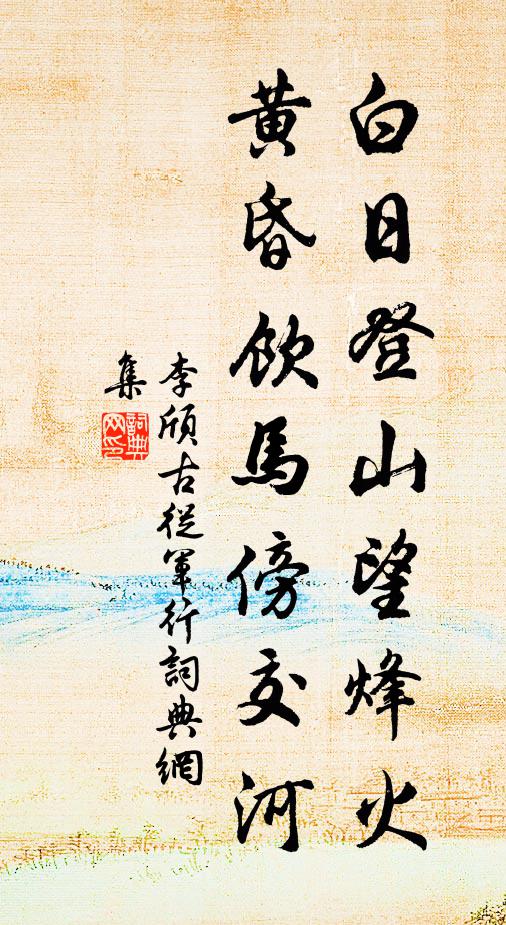 白日登山望烽火
黃昏飲馬傍交河
李頎古從軍行詞典網
集
詞典网印